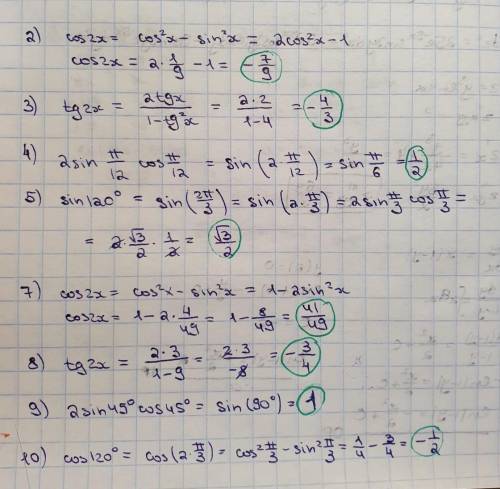 2) cos2x = cos²x - sin²x = 2cos²x - 1
cos2x = 2·1/9 - 1 = -7/9
3) tg2x = 2tgx/1-tg²x = 2·2/1-4 = -4/3
4) 2sin π/12 cos π/12 = sin(2·π/12) = sin π/6 = 1/2
5) sin120° = sin(2π/3) = sin(2·π/3) = 2sin π/3 cos π/3 =
= 2·√3/2 · 1/2 = √3/2
7) cos2x = cos²x - sin²x = 1 - 2sin²x
cos2x = 1 - 2·4/49 = 1 - 8/49 = 41/49
8) tg2x = 2·3/1-9 = 2·3/-8 = -3/4
9) 2sin45° cos45° = sin(90°) = 1
10) cos120° = cos(2·π/3) = cos² π/3 - sin² π/3 = 1/4 - 3/4 = -1/2